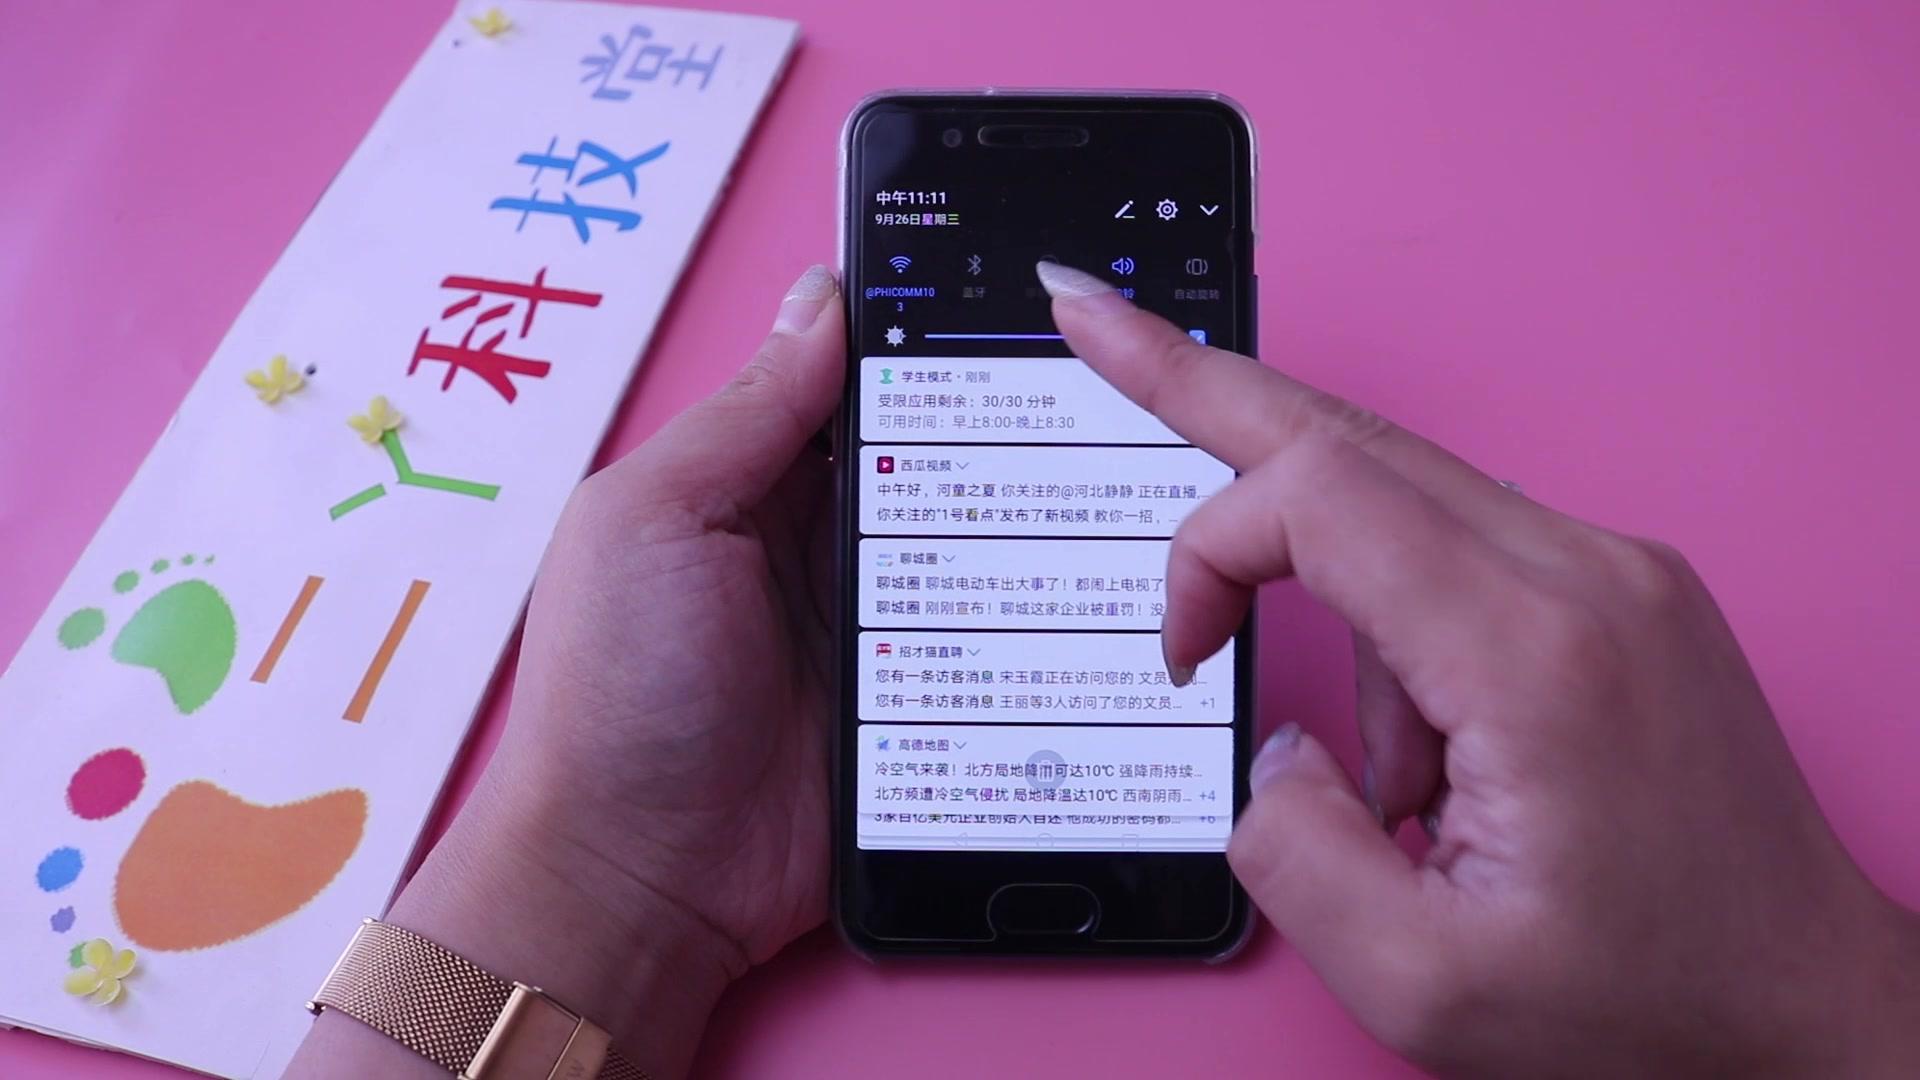 二丫科技堂
中午11:11
9月26日星期三
@PHICOMM10
3
蓝牙
铃
自动旋转
学生模式·刚刚
受限应用剩余：30/30 分钟
可用时间：早上8:00-晚上8:30
西瓜视频
中午好，河童之夏 你关注的@河北静静 正在直播,...
你关注的"1号看点"发布了新视频 教你一招，...
聊城圈
聊城圈 聊城电动车出大事了！都闹上电视了
聊城圈 刚刚宣布！聊城这家企业被重罚！没
招才猫直聘
您有一条访客消息 宋玉霞正在访问您的 文员
您有一条访客消息 王丽等3人访问了您的文员... +1
高德地图
冷空气来袭！北方局地降雨可达10℃ 强降雨持续...
北方频遭冷空气侵扰 局地降温达10℃ 西南阴雨... +4
3家百亿美元企业创始人自述 他成功的密码都... +6